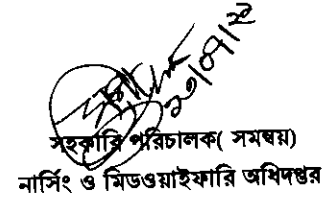 ২০/০৭/২০
সহকারি পরিচালক( সমন্বয়)
নার্সিং ও মিডওয়াইফারি অধিদপ্তর